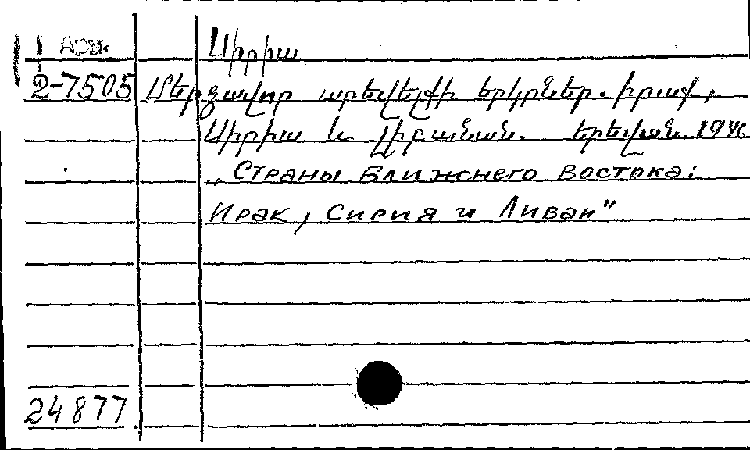 Սիրիա
2-7505 Մերձավոր արեվելքի երկրներ. Իրաք,
Սիրիա և Լիբանան. Երեվան. 194
„Страны Ближнего Востока:
Ирак, Сирия и Ливан"
24877